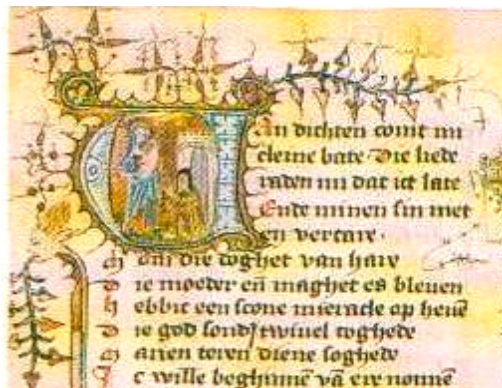 Van dichten comt mi
cleine bate Die liede
raden mi dat ict late
Ende minen sin niet
en vertare.
M aer om die doghet van hare
D ie moeder eñ maghet es bleuen
H ebbic een scone mieracle op heuē
D ie god sonder twiuel toghede
M arien teren diene soghede
I c wille beghinnē vā ere nonnē